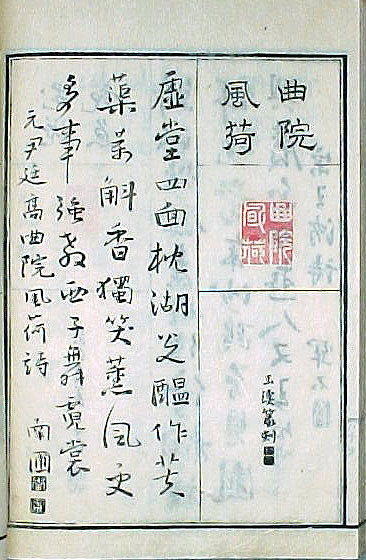 曲院
風荷
曲院風荷
篆刻
虛堂四面枕湖光醖作芙
蕖萬斛香獨笑薰風更
多事強教西子舞霓裳
元尹廷高曲院風荷詩 南